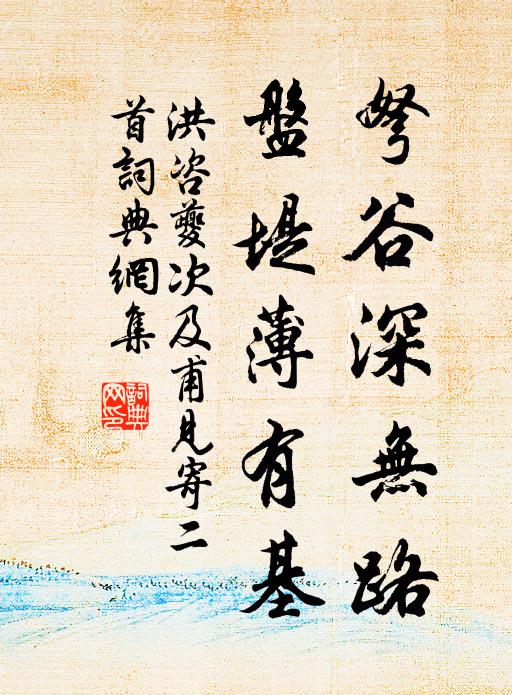 弩谷深無路
盤堤薄有基
洪咨夔次及甫見寄二
首詞典網集
詞典
網印